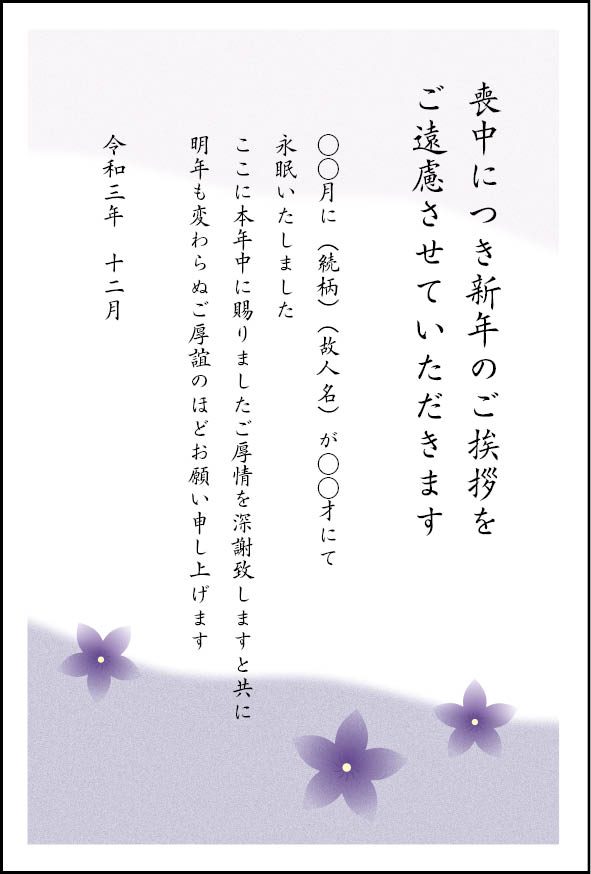 喪中につき新年のご挨拶を
ご遠慮させていただきます
〇〇月に（続柄）（故人名）が〇〇才にて
永眠いたしました
ここに本年中に賜りましたご厚情を深謝致しますと共に
明年も変わらぬご厚誼のほどお願い申し上げます
令和三年　十二月